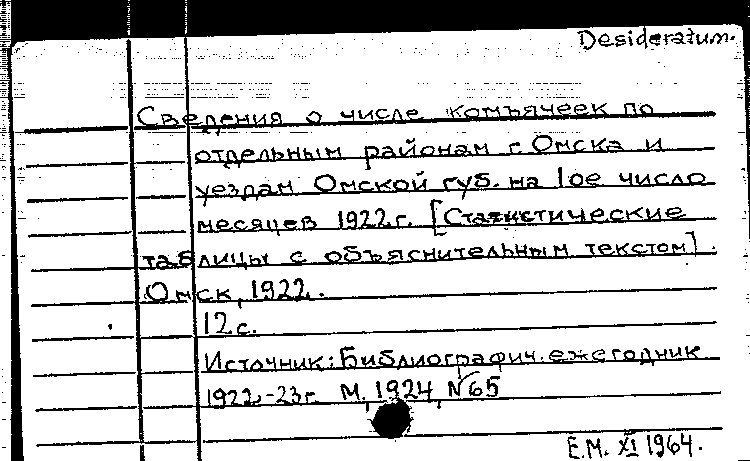 Desideratum.
Сведения о числе комъячеек по
отдельным районам г. Омска и
уездам Омской губ. на 1ое число
месяцев 1922 г. [Статистические
таблицы с объяснительным текстом].
Омск, 1922.
12 с.
Источник: Библиографич. ежегодник
1922-23 г. М., 1924, № 65
Е.М. XI 1964.